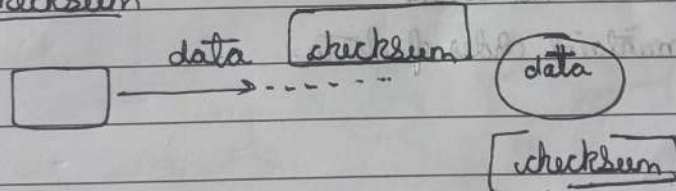 checksum
data checksum
data
checksum